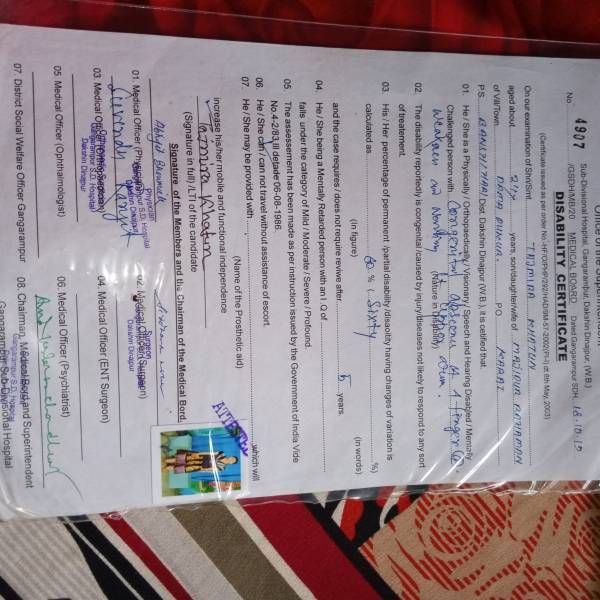 Office of the Superintendent
Sub-Divisional Hospital, Gangarampur, Dakshin Dinajpur, (W.B.)
No. 4907 /GSDH/MB/20 MEDICAL BOARD Gangarampur SDH. 16.10.10
DISABILITY CERTIFICATE
On our examination of Shri/Smt. TAJMIRA KHATUN
aged about 24y years, son/daughter/wife of MAJIDUR RAHAMAN
of Vill/Town P.O.
P.S. BANSHIHARI Dist. Dakshin Dinajpur (W.B.), it is certified that.
01. He / She is a Physically / Orthopaedically / Visionary / Speech and Hearing Disabled / Mentally
Challenged person with Congenital absence of 4 fingers
(Nature in Disability)
02. The disability reportedly is congenital /caused by injury/diseases not likely to respond to any sort
of treatement.
03. His / Her percentage of permanent /partial disability /disaolity having changes of variation is
calculated as: 60 % ( Sixty %)
(In figure) (in words)
and the case requires / does not require reviwe after 5 years.
04. He / She being a Mentally Retarded person with an I Q of
falls under the category of Mild / Moderate / Severe / Profound
05. The assessement has been made as per instruction issued by the Government of India Vide
No.4-2/83,III detade 06-08-1986.
06. He / She can / can not travel without assistance of escort.
07. He / She may be provided with which will
(Name of the Prosthetic aid)
increase his/her mobile and functional independence
Tajmira Khatun
(Signature in full) /LTI of the candidate
ATTESTED
Signature of the Members and the Chairman of the Medical Bord
Physician
Gangarampur S.D. Hospital
Dakshin Dinajpur
Surgeon
01. Medical Officer (Physician) 02. Medical Officer (Surgeon)
03. Medical Officer 04. Medical Officer (ENT Surgeon)
Gangarampur S.D. Hospital
Dakshin Dinajpur
05. Medical Officer (Ophthalmologist) 06. Medical Officer (Psychiatrist)
07. District Social Welfare Officer Gangarampur 08. Chairman, Medical Bord and Superintendent
Gangarampur Sub-Divisional Hospital